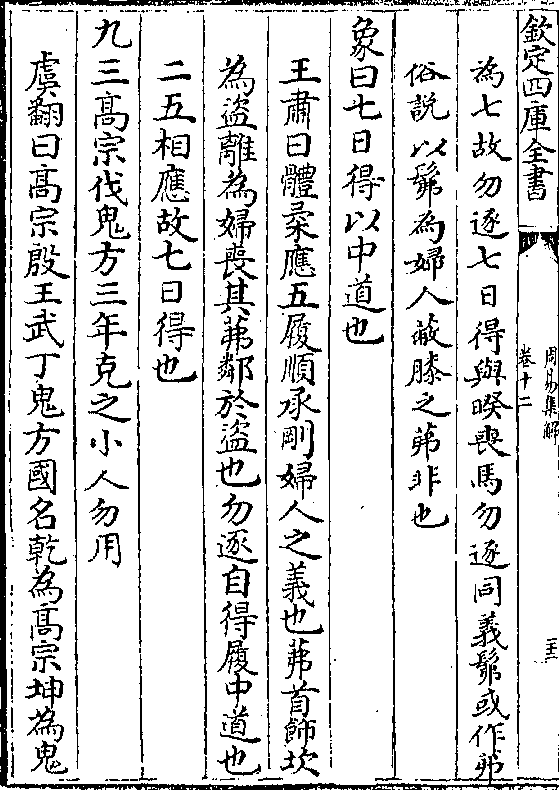 欽定四庫全書
周易集解
卷十二
三
為七故勿逐七日得與睽喪馬勿逐同義髴或作茀
俗説以髴為婦人蔽膝之茀非也
象曰七日得以中道也
王肅曰體柔應五履順承剛婦人之義也茀首飾坎
為盜離為婦喪其茀鄰於盜也勿逐自得履中道也
二五相應故七日得也
九三髙宗伐鬼方三年克之小人勿用
虞翻曰髙宗殷王武丁鬼方國名乾為髙宗坤為鬼